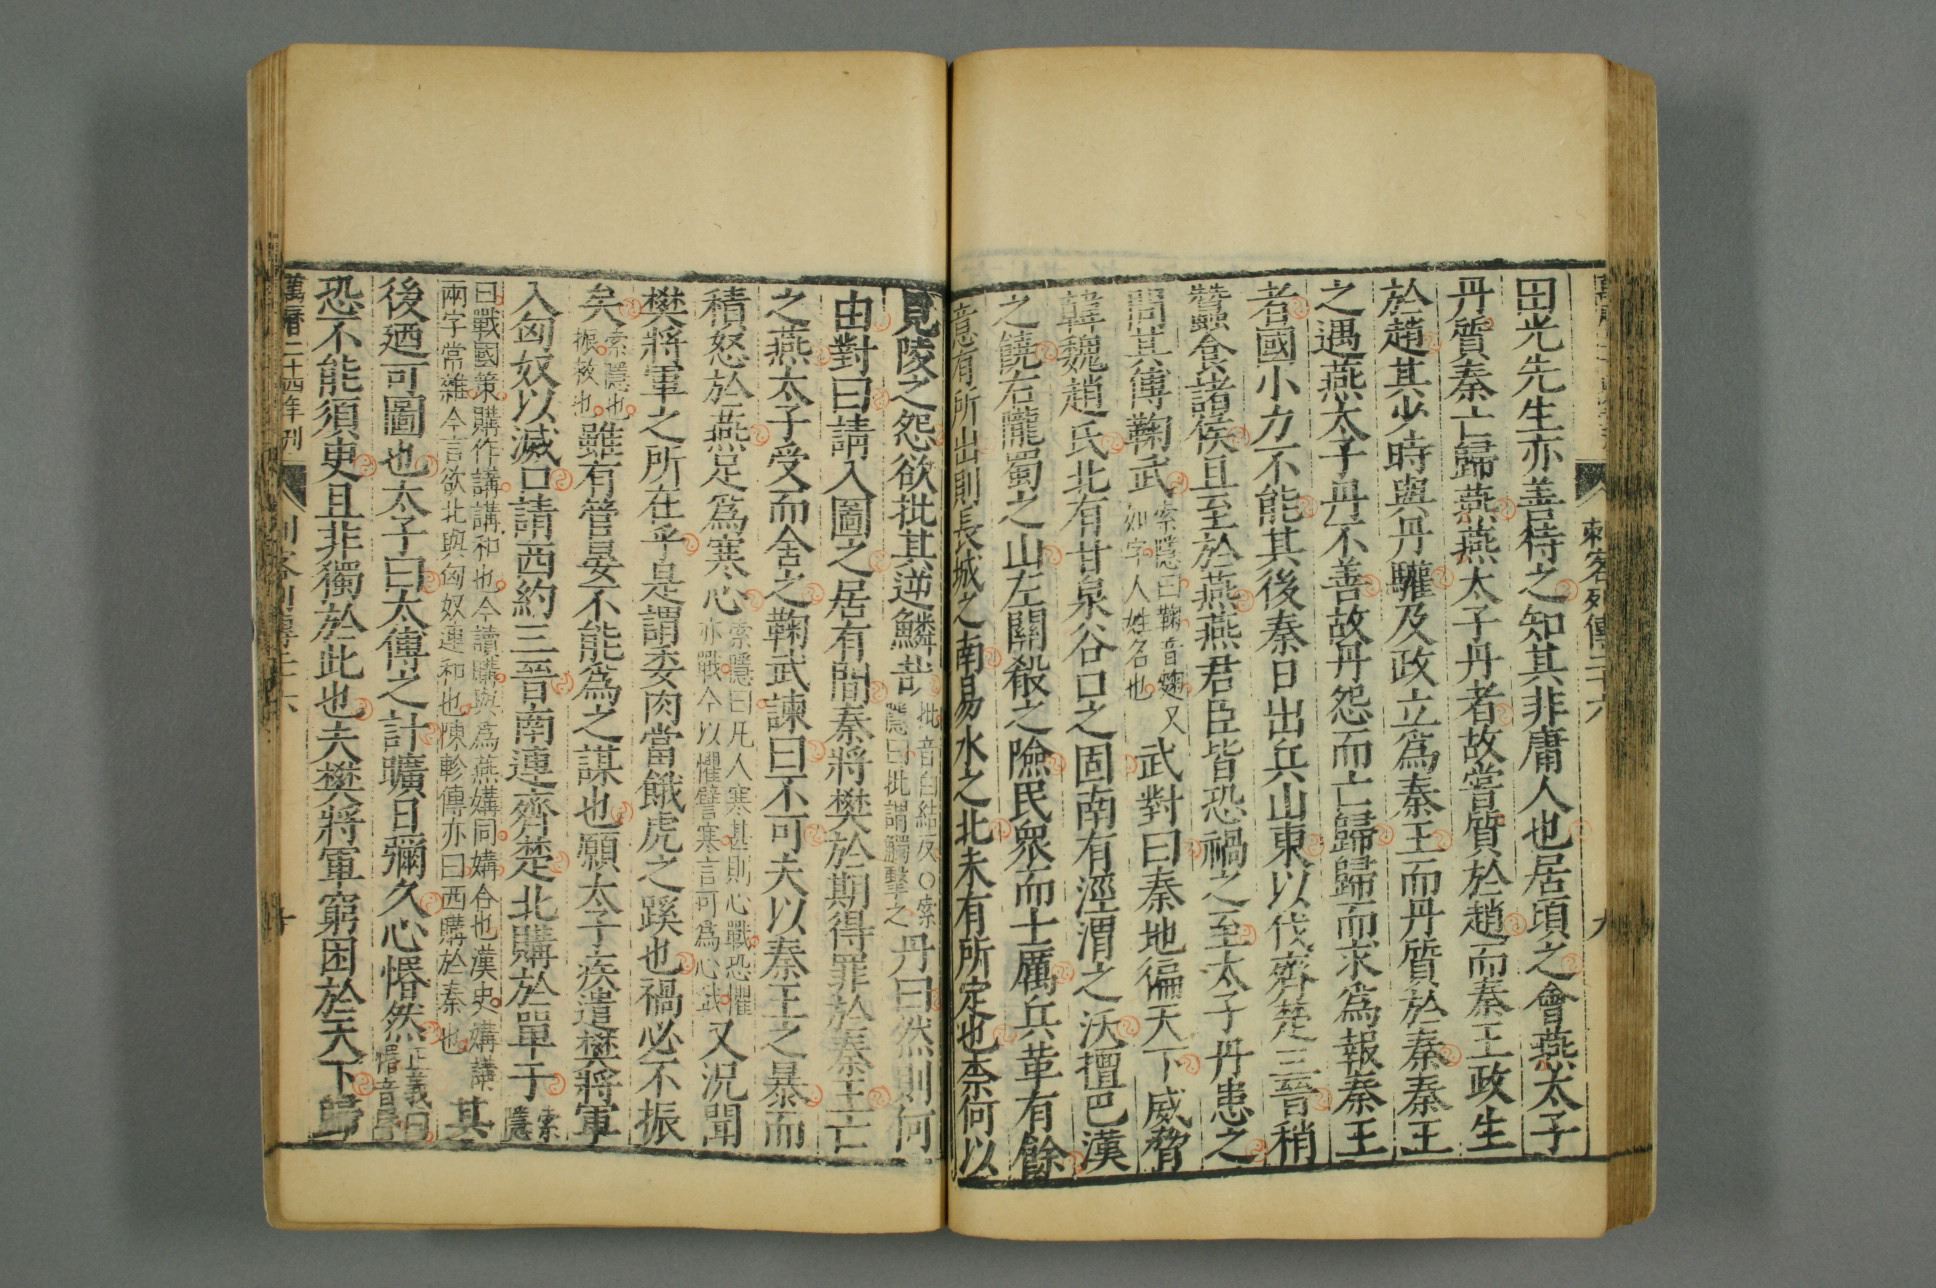 刺客列傳二十六
九
田光先生亦善待之知其非庸人也居頃之會燕太子
丹質秦亡歸燕燕太子丹者故嘗質於趙而秦王政生
於趙其少時與丹驩及政立爲秦王而丹質於秦秦王
之遇燕太子丹不善故丹怨而亡歸歸而求爲報秦王
者國小力不能其後秦日出兵山東以伐齊楚三晉稍
蠶食諸侯且至於燕燕君臣皆恐禍之至太子丹患之
問其傅鞠武索隱曰鞠音麴又如字人姓名也武對曰秦地徧天下威脅
韓魏趙氏北有甘泉谷口之固南有涇渭之沃擅巴漢
之饒右隴蜀之山左關殽之險民衆而士厲兵革有餘
意有所出則長城之南易水之北未有所定也柰何以
見陵之怨欲批其逆鱗哉批音白結反○索隱曰批謂觸擊之丹曰然則何
由對曰請入圖之居有間秦將樊於期得罪於秦王亡
之燕太子受而舍之鞠武諫曰不可夫以秦王之暴而
積怒於燕足爲寒心索隱曰凡人寒甚則心戰恐懼亦戰今以懼譬寒言可爲心戰又況聞
樊將軍之所在乎是謂委肉當餓虎之蹊也禍必不振
矣索隱振救也雖有管晏不能爲之謀也願太子疾遣樊將軍
入匈奴以滅口請西約三晉南連齊楚北購於單于索隱
曰戰國策購作講講和也今讀購與爲燕媾同媾合也漢史媾講兩字常雜今言欲北與匈奴連和也陳軫傳亦曰西購於秦也其
後廼可圖也太子曰太傅之計曠日彌久心惽然正義曰惽音昏
恐不能須臾且非獨於此也夫樊將軍窮困於天下歸
萬曆二十四年刊
十